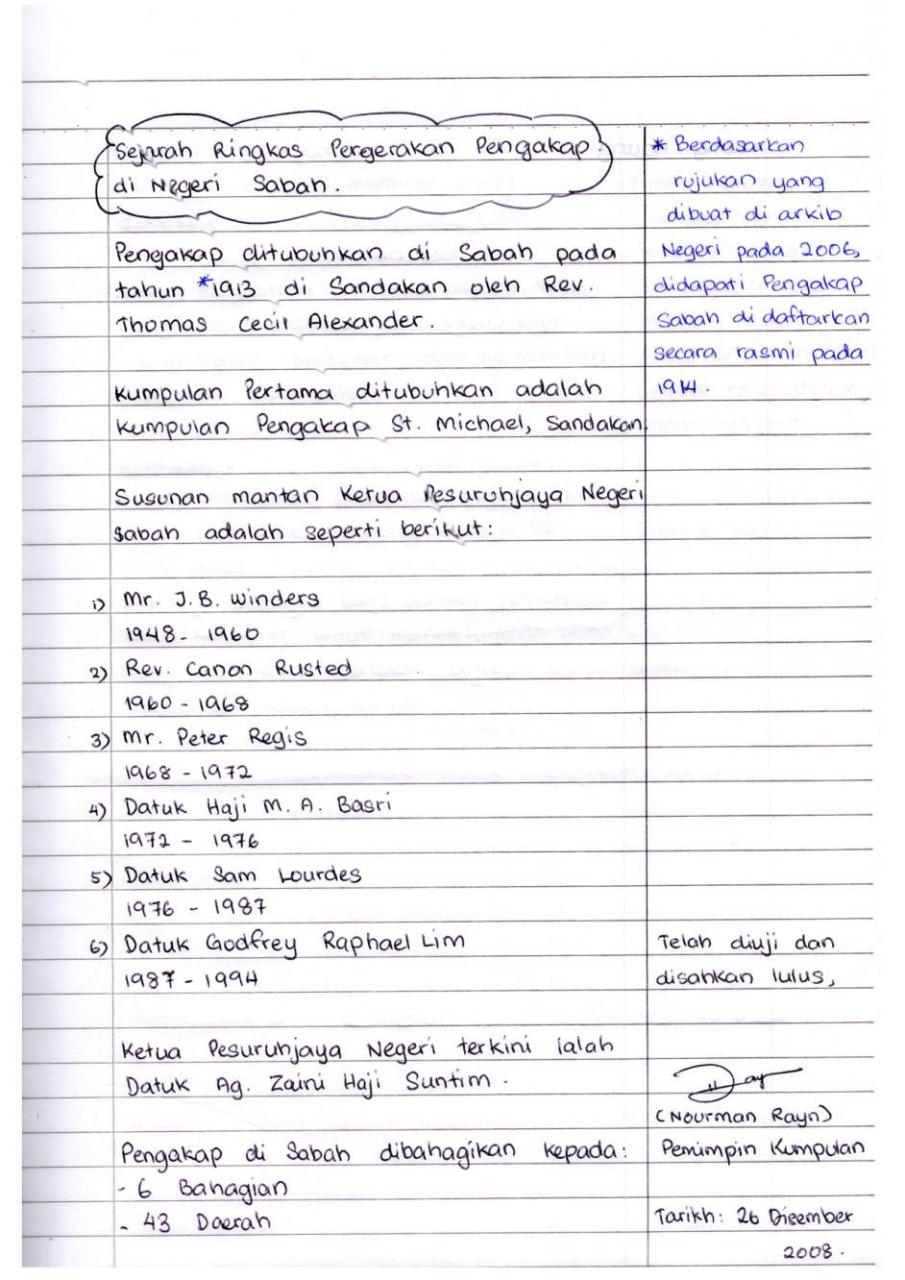 Sejarah Ringkas Pergerakan Pengakap
di Negeri Sabah.
Pengakap ditubuhkan di Sabah pada
tahun *1913 di Sandakan oleh Rev.
Thomas Cecil Alexander.
Kumpulan Pertama ditubuhkan adalah
Kumpulan Pengakap St. Michael, Sandakan.
Susunan mantan Ketua Pesuruhjaya Negeri
Sabah adalah seperti berikut:
1) Mr. J.B. Winders
1948 - 1960
2) Rev. Canon Rusted
1960 - 1968
3) Mr. Peter Regis
1968 - 1972
4) Datuk Haji M. A. Basri
1972 - 1976
5) Datuk Sam Lourdes
1976 - 1987
6) Datuk Godfrey Raphael Lim
1987 - 1994
Ketua Pesuruhjaya Negeri terkini ialah
Datuk Ag. Zaini Haji Suntim.
Pengakap di Sabah dibahagikan kepada:
- 6 Bahagian
- 43 Daerah
* Berdasarkan
rujukan yang
dibuat di arkib
Negeri pada 2006,
didapati Pengakap
Sabah di daftarkan
secara rasmi pada
1914.
Telah diuji dan
disahkan lulus,
(Nourman Rayn)
Pemimpin Kumpulan
Tarikh: 26 Disember
2008.